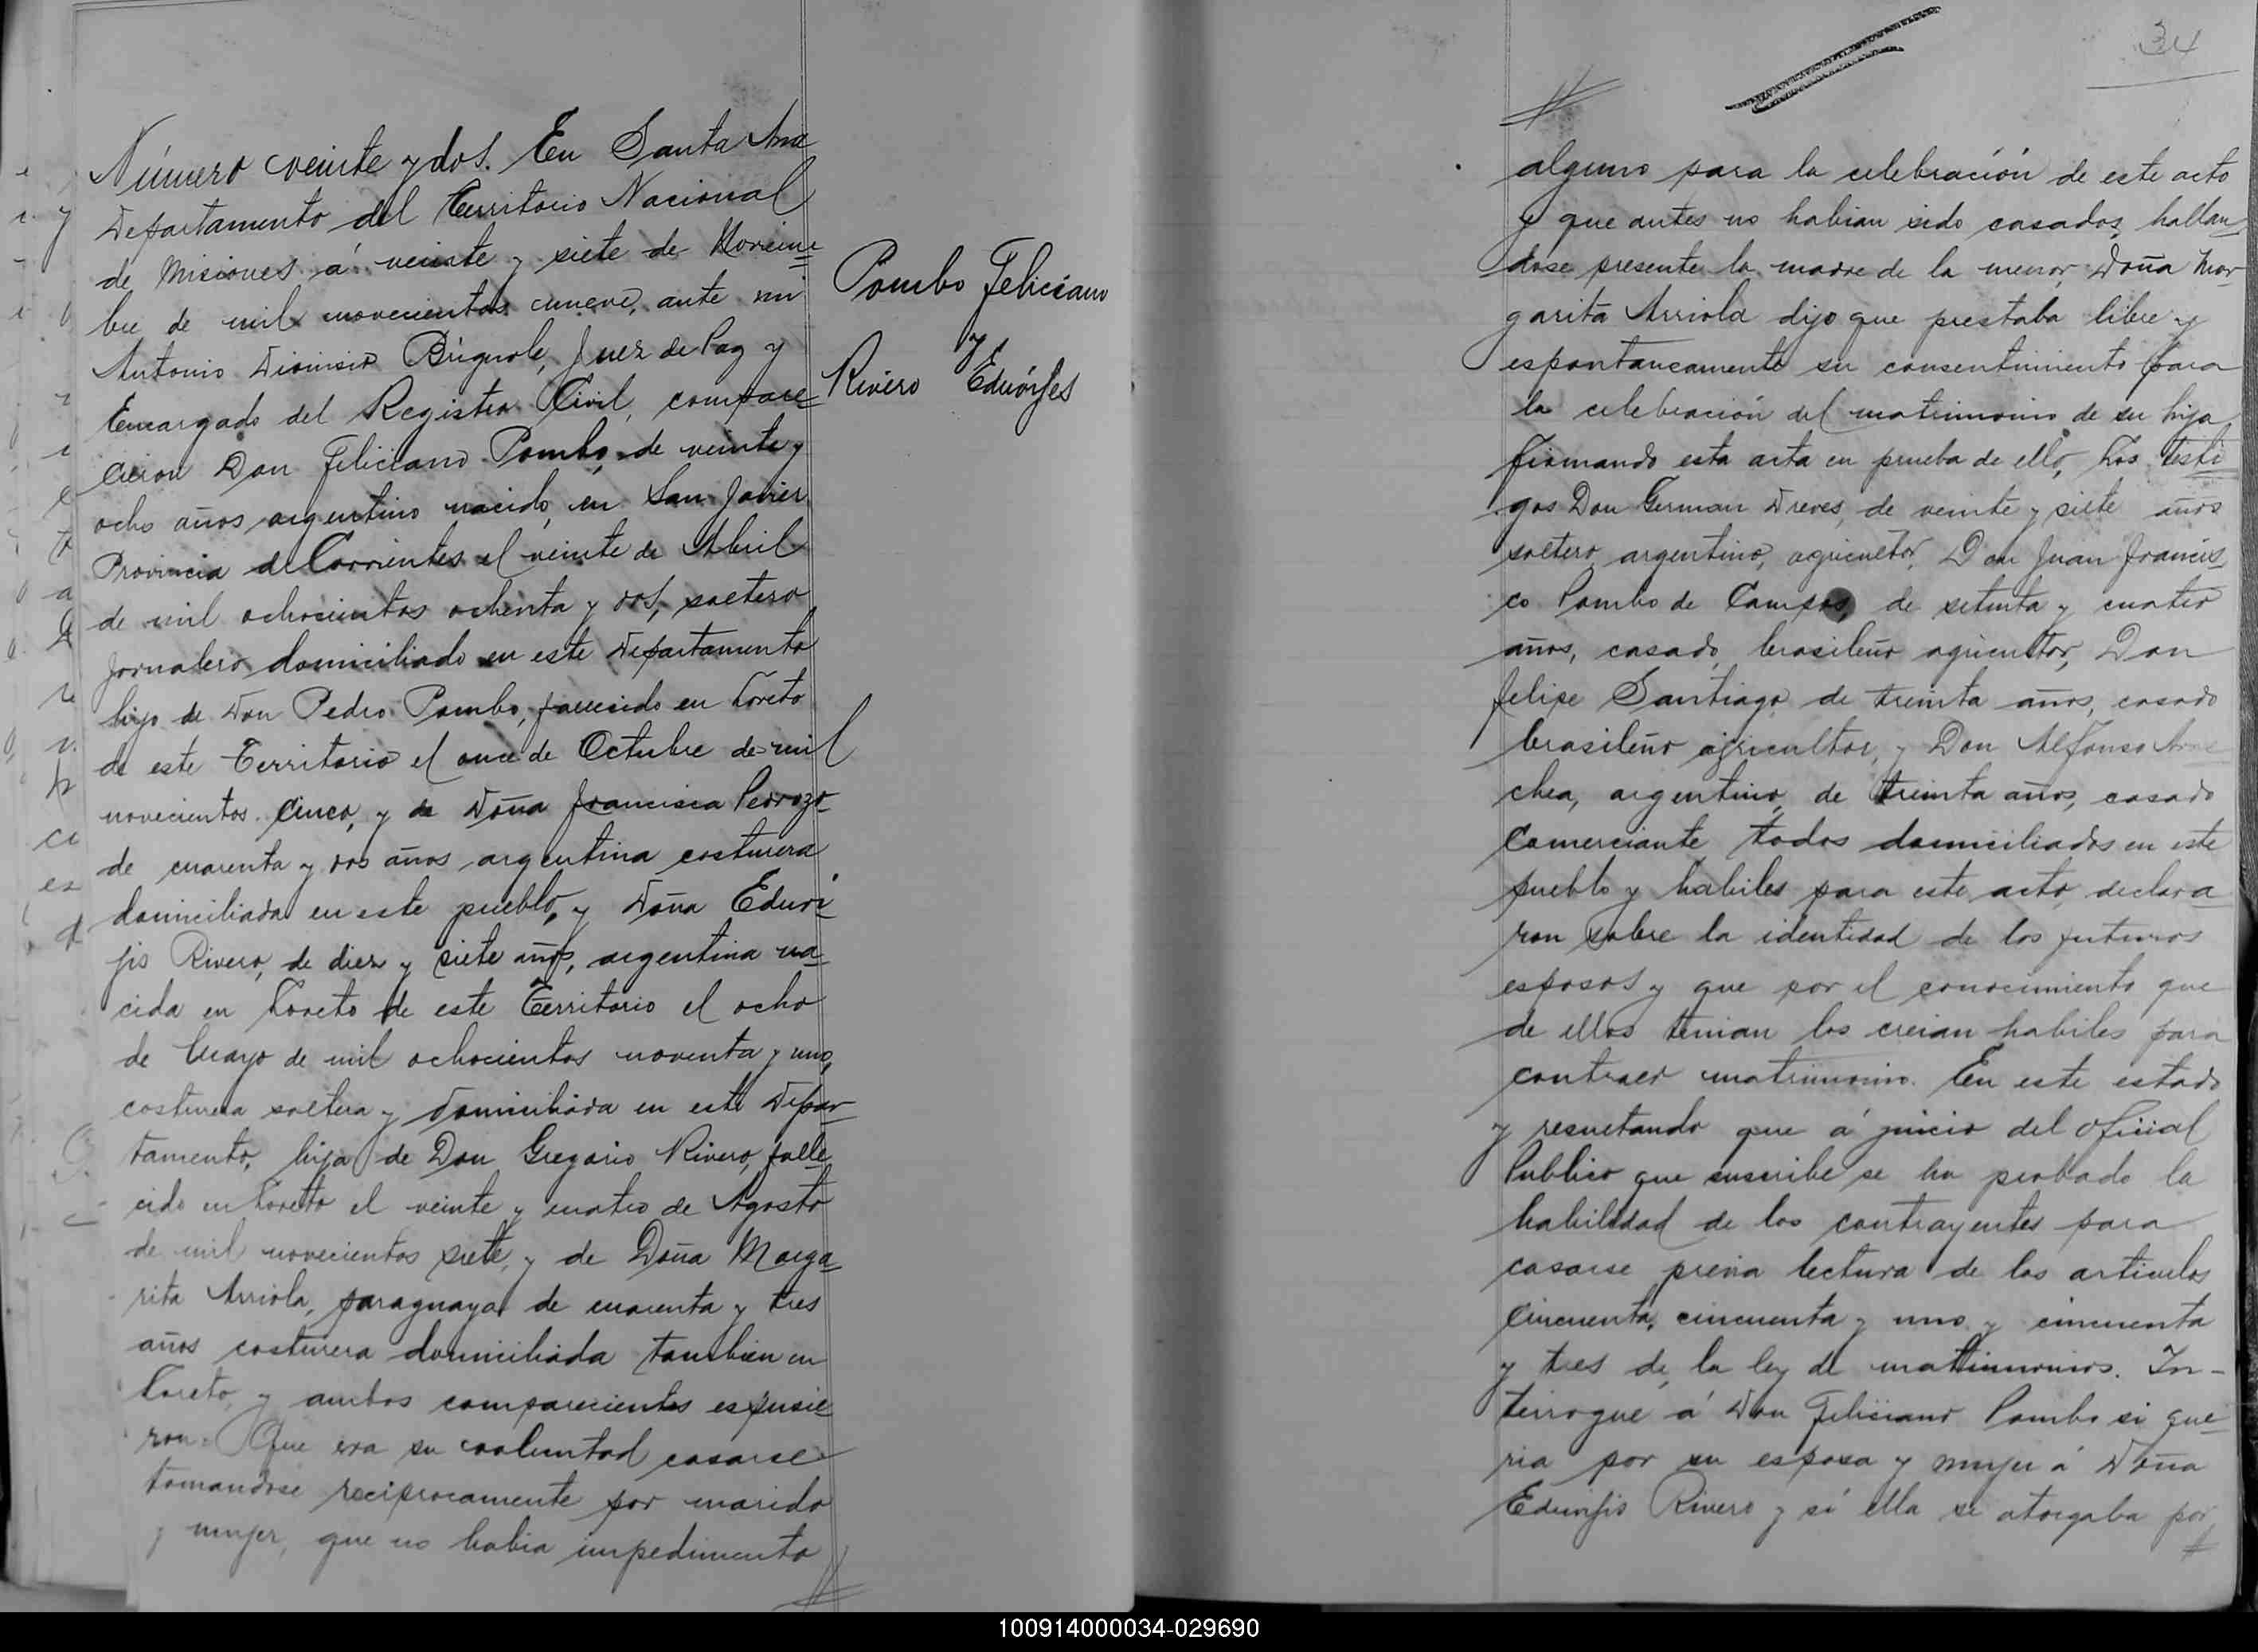 Número veinte y dos. En Santa Ana
Departamento del Territorio Nacional
de Misiones á veinte y siete de Noviem
bre de mil novecientos nueve, ante mi
Antonio Dionisio Búgnole, Juez de Paz y
Encargado del Registro Civil, compare
cieron Don Feliciano Pombo, de veinte y
ocho años argentino nacido en San Javier
Provincia de Corrientes el veinte de Abril
de mil ochocientos ochenta y dos, soltero
jornalero domiciliado en este Departamento
hijo de Don Pedro Pombo, fallecido en Loreto
de este Territorio el once de Octubre de mil
novecientos cinco, y de Doña Francisca Pedrozo
de cuarenta y dos años argentina costurera
domiciliada en este pueblo, y Doña Eduvi
jis Rivero, de diez y siete años, argentina na
cida en Loreto de este Territorio el ocho
de Mayo de mil ochocientos noventa y uno,
costurera soltera y domiciliada en este Depar
tamento, hija de Don Gregorio Rivero, falle
cido en Loreto el veinte y cuatro de Agosto
de mil novecientos siete, y de Doña Marga
rita Arriola, paraguaya de cuarenta y tres
años costurera domiciliada tambien en
Loreto, y ambos comparecientes espusie
ron: Que era su voluntad casarse
tomandose reciprocamente por marido
y mujer, que no habia impedimento
Pombo Feliciano
y
Rivero Eduvijes
34
alguno para la celebración de este acto
y que antes no habian sido casados, hallan
dose presente la madre de la menor, Doña Mar
garita Arriola dijo que prestaba libre y
espontaneamente su consentimiento para
la celebración del matrimonio de su hija
firmando esta acta en prueba de ello, Los testi
gos Don German Dreves, de veinte y siete años
soltero, argentino, agricultor, Don Juan Francis
co Pombo de Campos, de setenta y cuatro
años, casado, brasileño agricultor, Don
Felipe Santiago de treinta años, casado
brasileño agricultor, y Don Alfonso Arre
chea, argentino, de treinta años, casado
Comerciante todos domiciliados en este
pueblo y habiles para este acto, declara
ron sobre la identidad de los futuros
esposos y que por el conocimiento que
de ellos tenian los creian habiles para
contraer matrimonio. En este estado
y resultando que á juicio del oficial
Publico que suscribe se ha probado la
habilidad de los contrayentes para
casarse previa lectura de los articulos
cincuenta, cincuenta y uno y cincuenta
y tres de la ley de matrimonios. In-
terrogue á Don Feliciano Pombo si que
ria por su esposa y mujer á Doña
Eduvijis Rivero y si ella se otorgaba por
100914000034-029690